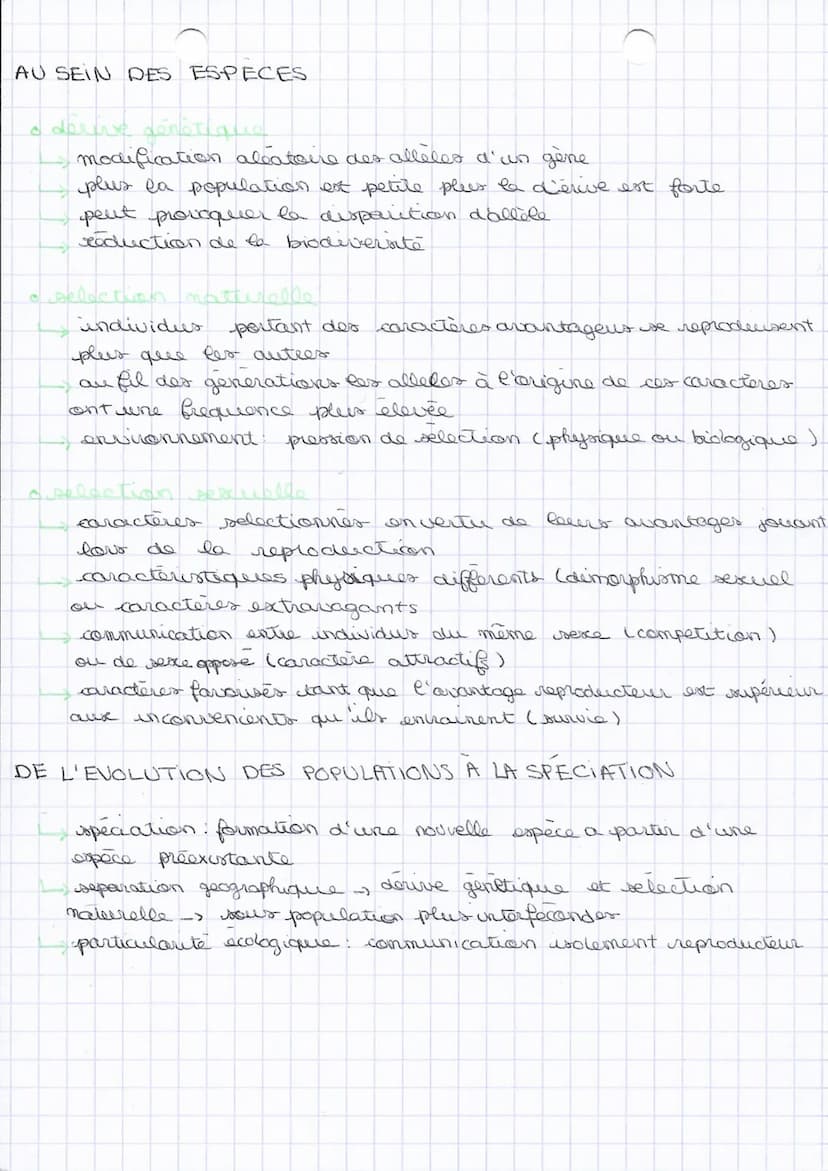 AU SEIN DES ESPECES
dérive génétique
↳ modification aléatoire des allèles d'un gène
↳ plus la population est petite plus la dérive est forte
↳ peut provoquer la disparition d'allèle
↳ réduction de la biodiversité
selection natturelle
↳ individus portant des caractères avantageus se reproduisent
plus que les autres
↳ au fil des générations les alleles à l'origine de ces caractères
ont une frequence plus élevée
↳ environnement : pression de sélection (physique ou biologique)
selection sexuelle
↳ caractères selectionnés en vertu de leurs avantages jouant
lors de la reproduction
↳ caractéristiques physiques différents (dimorphisme sexuel
ou caractères extravagants
↳ communication entre individus du même sexe (competition)
ou de sexe opposé (caractère attractif)
↳ caractères favorisés tant que l'avantage reproducteur est supérieur
aux inconvenients qu'ils entrainent (survie)
DE L'EVOLUTION DES POPULATIONS À LA SPÉCIATION
↳ spéciation : formation d'une nouvelle espèce a partir d'une
espèce préexistante
↳ separation geographique → dérive génétique et sélection
naturelle → sous population plus interfécondes
↳ particularité écologique : communication isolement reproducteur